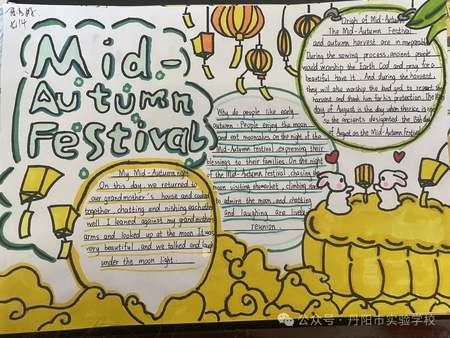 Mid-
Autumn
Festival
Origin of Mid-Autumn
The Mid-Autumn Festival
and autumn harvest are inseparable
During the sowing process, ancient people
would worship the Earth God and pray for a
beautiful harvest. And during the harvest,
they will also worship the God to
harvest and thank him for his protection. The
day of August is the day when the rice is
so the ancients designated the
of August as the Mid-Autumn Festival
Why do people like early
autumn. People enjoy the moon
and eat mooncakes on the night of the
Mid-Autumn Festival expressing their
blessings to their families. On the night
of the Mid-Autumn festival chasing the
moon visiting the market, climbing and
to admire the moon, and chatting
and laughing are lively
reunion
My Mid-Autumn night
On this day we returned to
our grandmother's house and sat
together chatting and
well. I leaned against my grandmother's
arms and looked up at the moon. It was
very beautiful and we talked and laugh
under the moon light
公众号·丹阳市实验学校